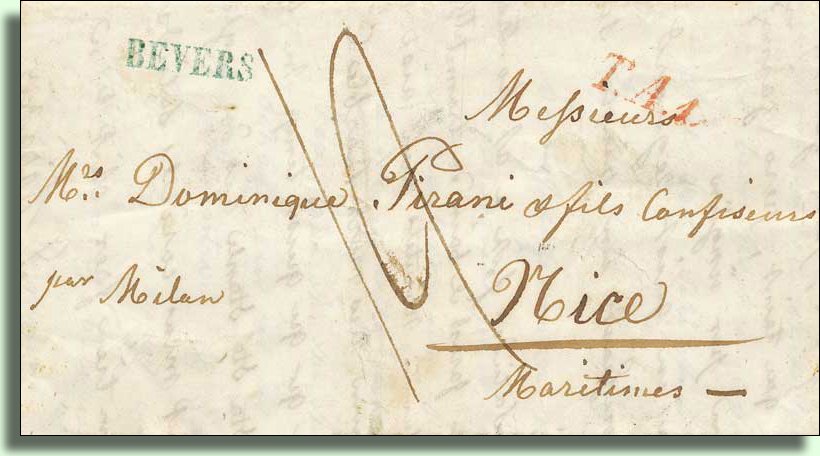 BEVERS
T.A.1.
Messieurs
Mrs. Dominique Pirani & fils Confiseurs
par Milan
Nice
Maritimes —